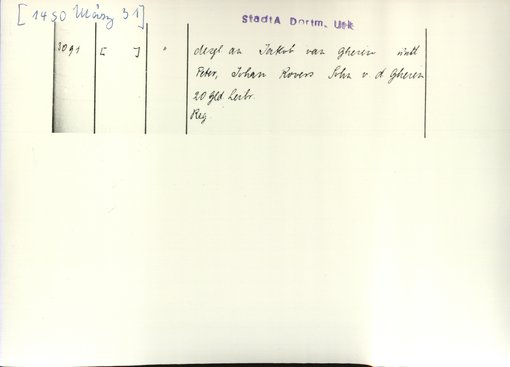 [1450 März 31]
StadtA Dortm. Urk
3091 [ ] " desgl an Jakob van Gheren und
Peter, Johan Rovers Sohn v. d. Gheren
20 Gld. Leibr.
Reg.